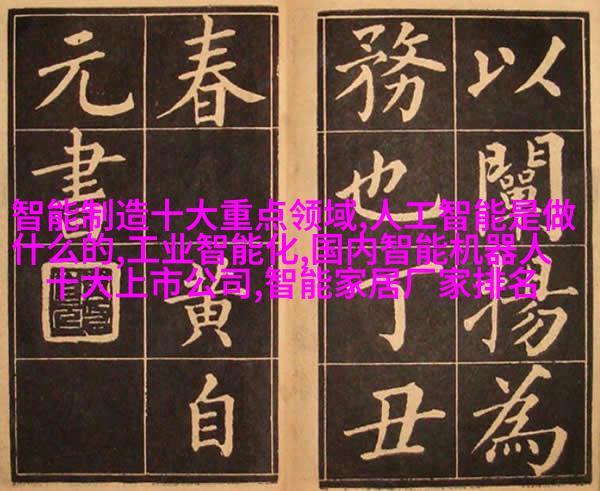 以闡揚為
務也丁丑
春黃自
元書
智能制造十大重点领域,人工智能是做
什么的,工业智能化,国内智能机器人
十大上市公司,智能家居厂家排名